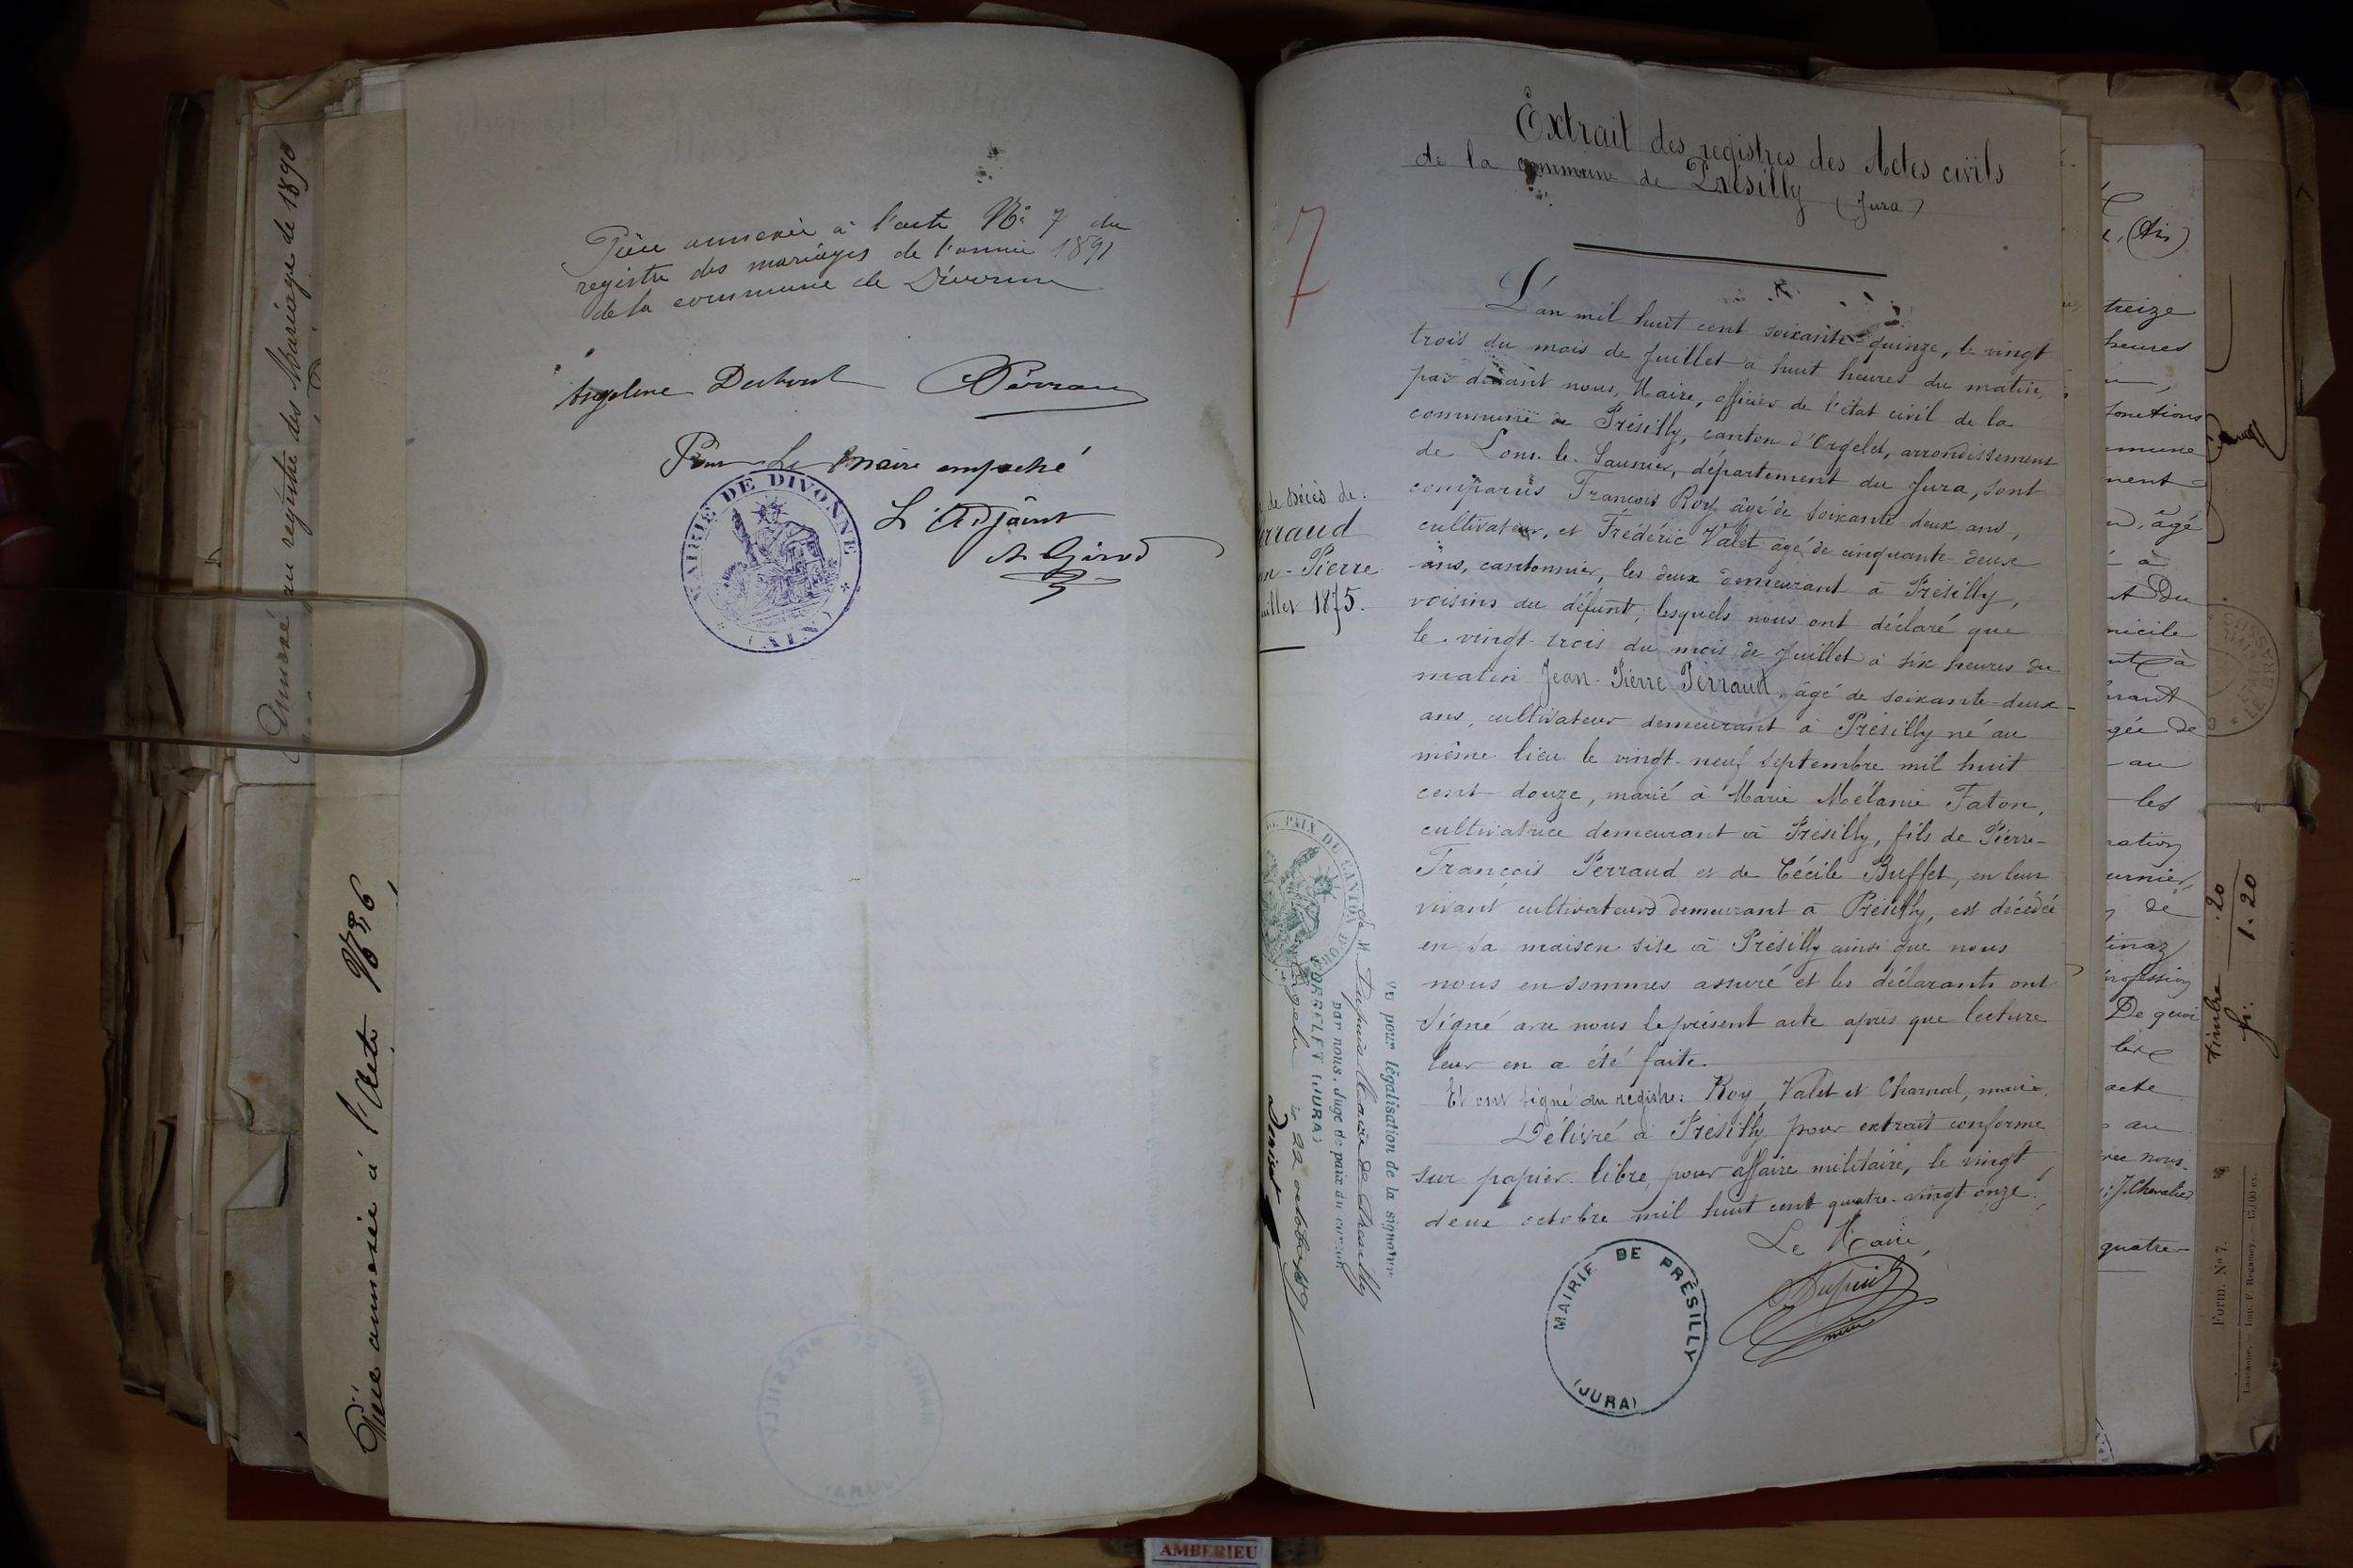 Annexé au registre des Mariage de 1890
Pièce annexée à l'acte N° 6
Pièce annexée à l'acte N° 7 du
registre des mariages de l'année 1891
de la commune de Divonne
Angeline
Pour Le Maire empeché
L'Adjoint
A. Girod
MAIRIE DE DIVONNE
(AIN)
Extrait des registres des Actes civils
de la commune de Présilly (Jura)
7
de décès de:
erraud
an-Pierre
uillet 1875.
L'an mil huit cent soixante-quinze, le vingt
trois du mois de Juillet à huit heures du matin,
par devant nous, Maire, officier de l'état civil de la
commune de Présilly, canton d'Orgelet, arrondissement
de Lons-le-Saunier, département du Jura, sont
comparus François Roy, âgé de soixante deux ans,
cultivateur, et Frédéric Valet âgé de cinquante-deux
ans, cantonnier, les deux demeurant à Présilly,
voisins du défunt, lesquels nous ont déclaré que
le vingt-trois du mois de Juillet à six heures du
matin Jean-Pierre Perraud, âgé de soixante-deux
ans, cultivateur demeurant à Présilly né au
même lieu le vingt-neuf septembre mil huit
cent-douze, marié à Marie Mélanie Faton,
cultivatrice demeurant à Présilly, fils de Pierre-
François Perraud et de Cécile Buffet, en leur
vivant cultivateurs demeurant à Présilly, est décédé
en sa maison sise à Présilly ainsi que nous
nous en sommes assuré et les déclarants ont
signé avec nous le présent acte après que lecture
leur en a été faite.
Et ont signé au registre: Roy, Valet et Charnal, maire.
Délivré à Présilly pour extrait conforme
sur papier libre, pour affaire militaire, le vingt
deux octobre mil huit cent quatre-vingt onze.
Le Maire,
Dupuis
maire
MAIRIE DE PRÉSILLY
(JURA)
PAIX DU CANTON D'ORG
Vu pour légalisation de la signature
de M. Dupuis Maire de Présilly
par nous, Juge de paix du canton
D'ORGELET (JURA)
Orgelet le 22 octobre 1891
(Ain)
treize
heures
fonctions
mmune
ment
âgé
à
du
micile
à
rant
gée de
au
les
ration
urnier,
de
tinaz
profession
De quoi
acte
au
avec nous.
: J. Chevalier
quatre-
timbre .20
fr. 1.20
Form. No 7.
Lausanne. - Imp. F. Regamey.
AMBERIEU